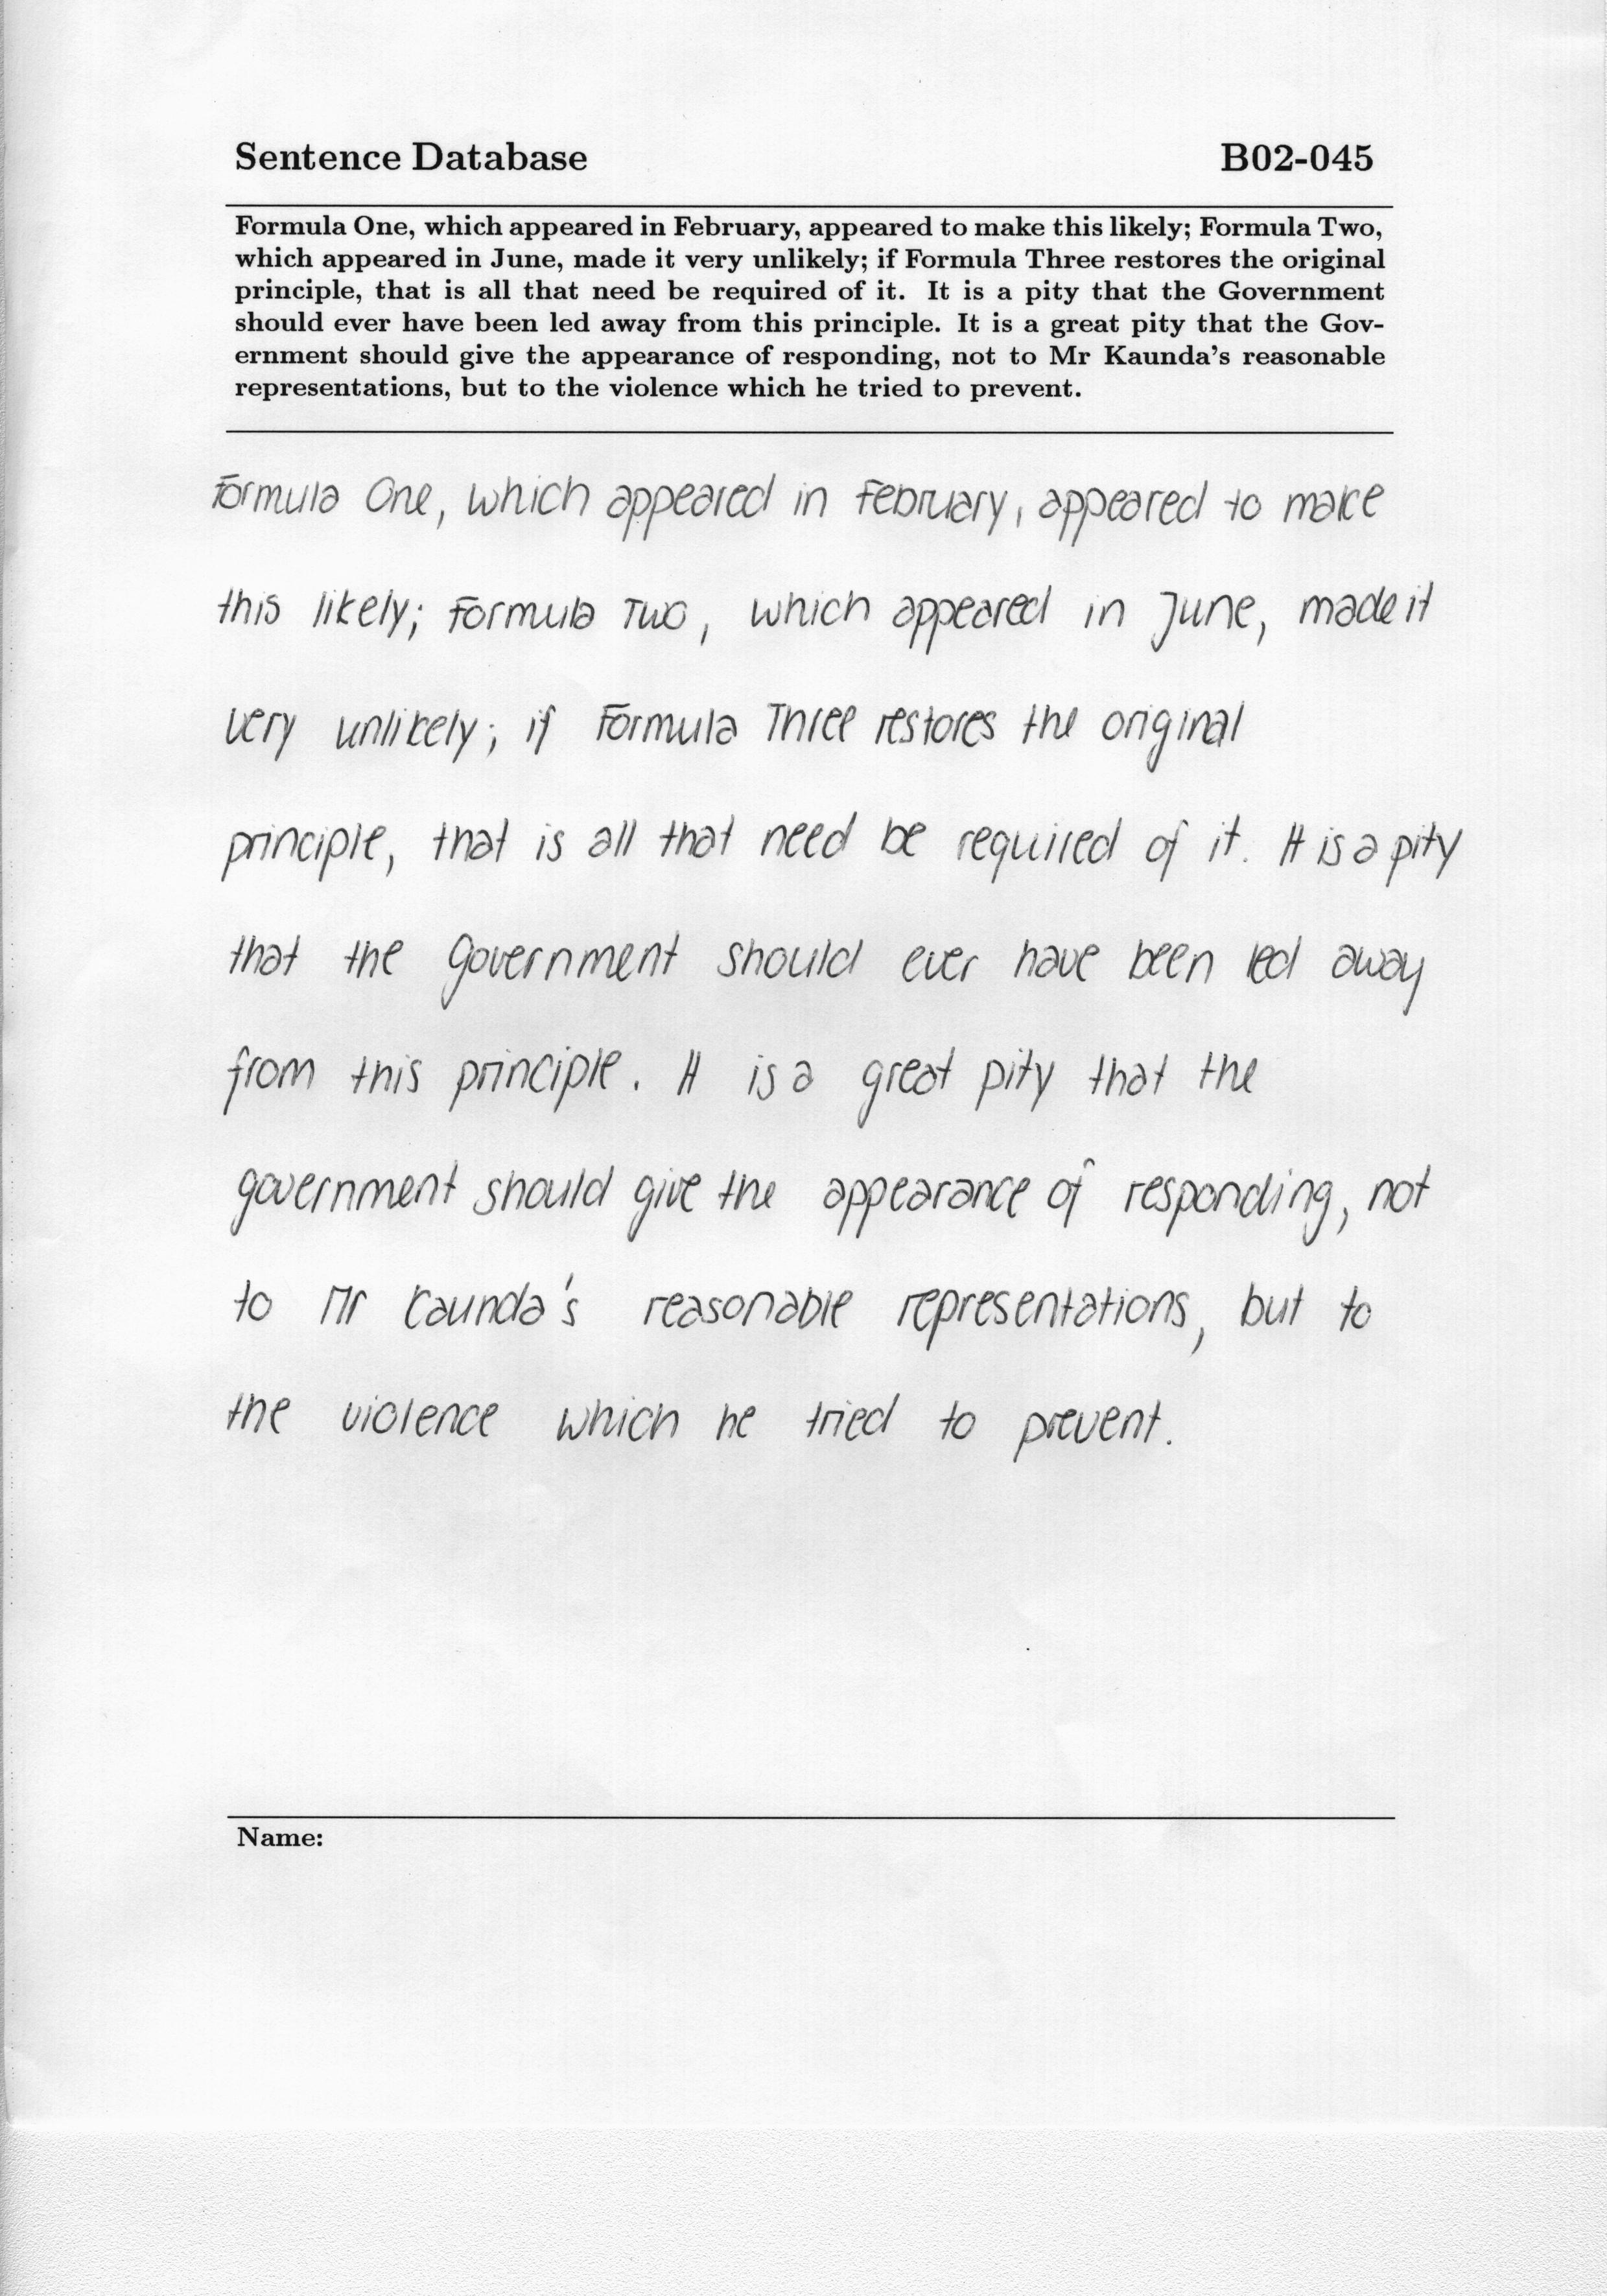 Sentence Database B02-045
Formula One, which appeared in February, appeared to make this likely; Formula Two,
which appeared in June, made it very unlikely; if Formula Three restores the original
principle, that is all that need be required of it. It is a pity that the Government
should ever have been led away from this principle. It is a great pity that the Gov-
ernment should give the appearance of responding, not to Mr Kaunda's reasonable
representations, but to the violence which he tried to prevent.
Formula One, which appeared in February, appeared to make
this likely; Formula Two, which appeared in June, made it
very unlikely; if Formula Three restores the original
principle, that is all that need be required of it. It is a pity
that the government should ever have been led away
from this principle. It is a great pity that the
government should give the appearance of responding, not
to Mr Kaunda's reasonable representations, but to
the violence which he tried to prevent.
Name: